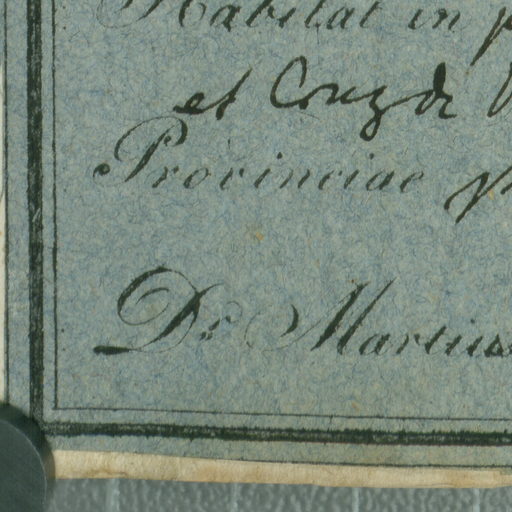 Habitat in
et Cruz de
Provinciae
Dr. Martius